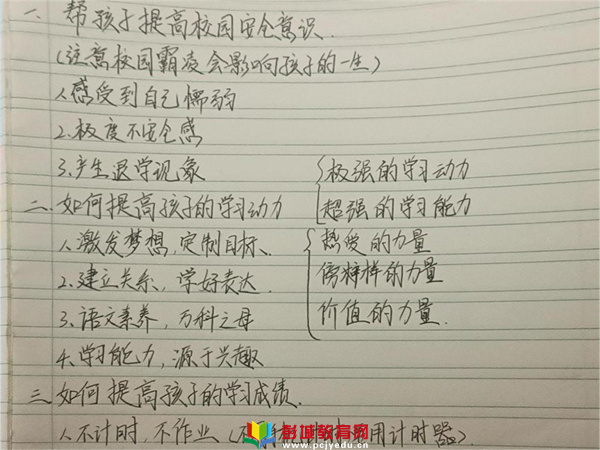 一、帮孩子提高校园安全意识.
(注意校园霸凌会影响孩子的一生)
1.感受到自己懦弱
2.极度不安全感
3.产生退学现象
极强的学习动力
二.如何提高孩子的学习动力
超强的学习能力
1.激发梦想,定制目标.
热爱的力量
2.建立关系,学好表达
榜样的力量
3.语文素养,万科之母
价值的力量.
4.学习能力,源于兴趣
三.如何提高孩子的学习成绩.
1.不计时,不作业(不 用计时器).
彭城教育网
www.pcjyedu.cn